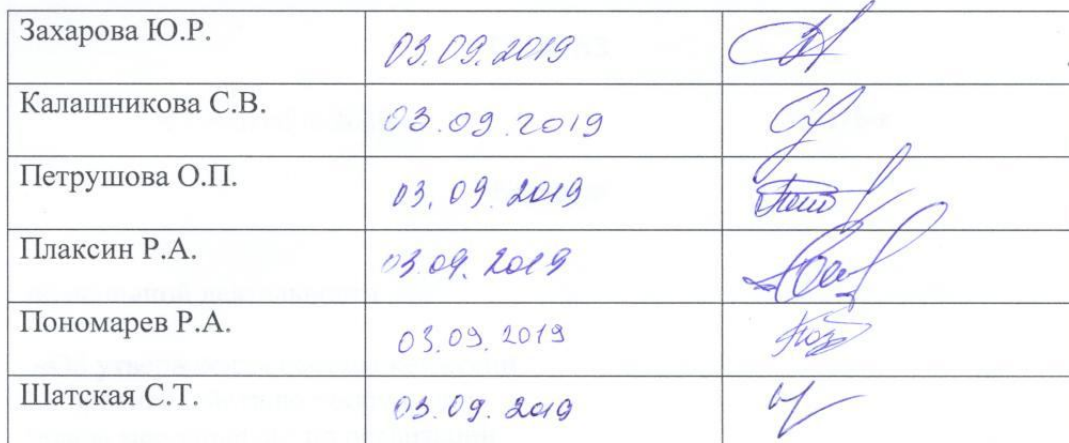 Захарова Ю.Р. 03.09.2019
Калашникова С.В. 03.09.2019
Петрушова О.П. 03.09.2019
Плаксин Р.А. 03.09.2019
Пономарев Р.А. 03.09.2019
Шатская С.Т. 03.09.2019